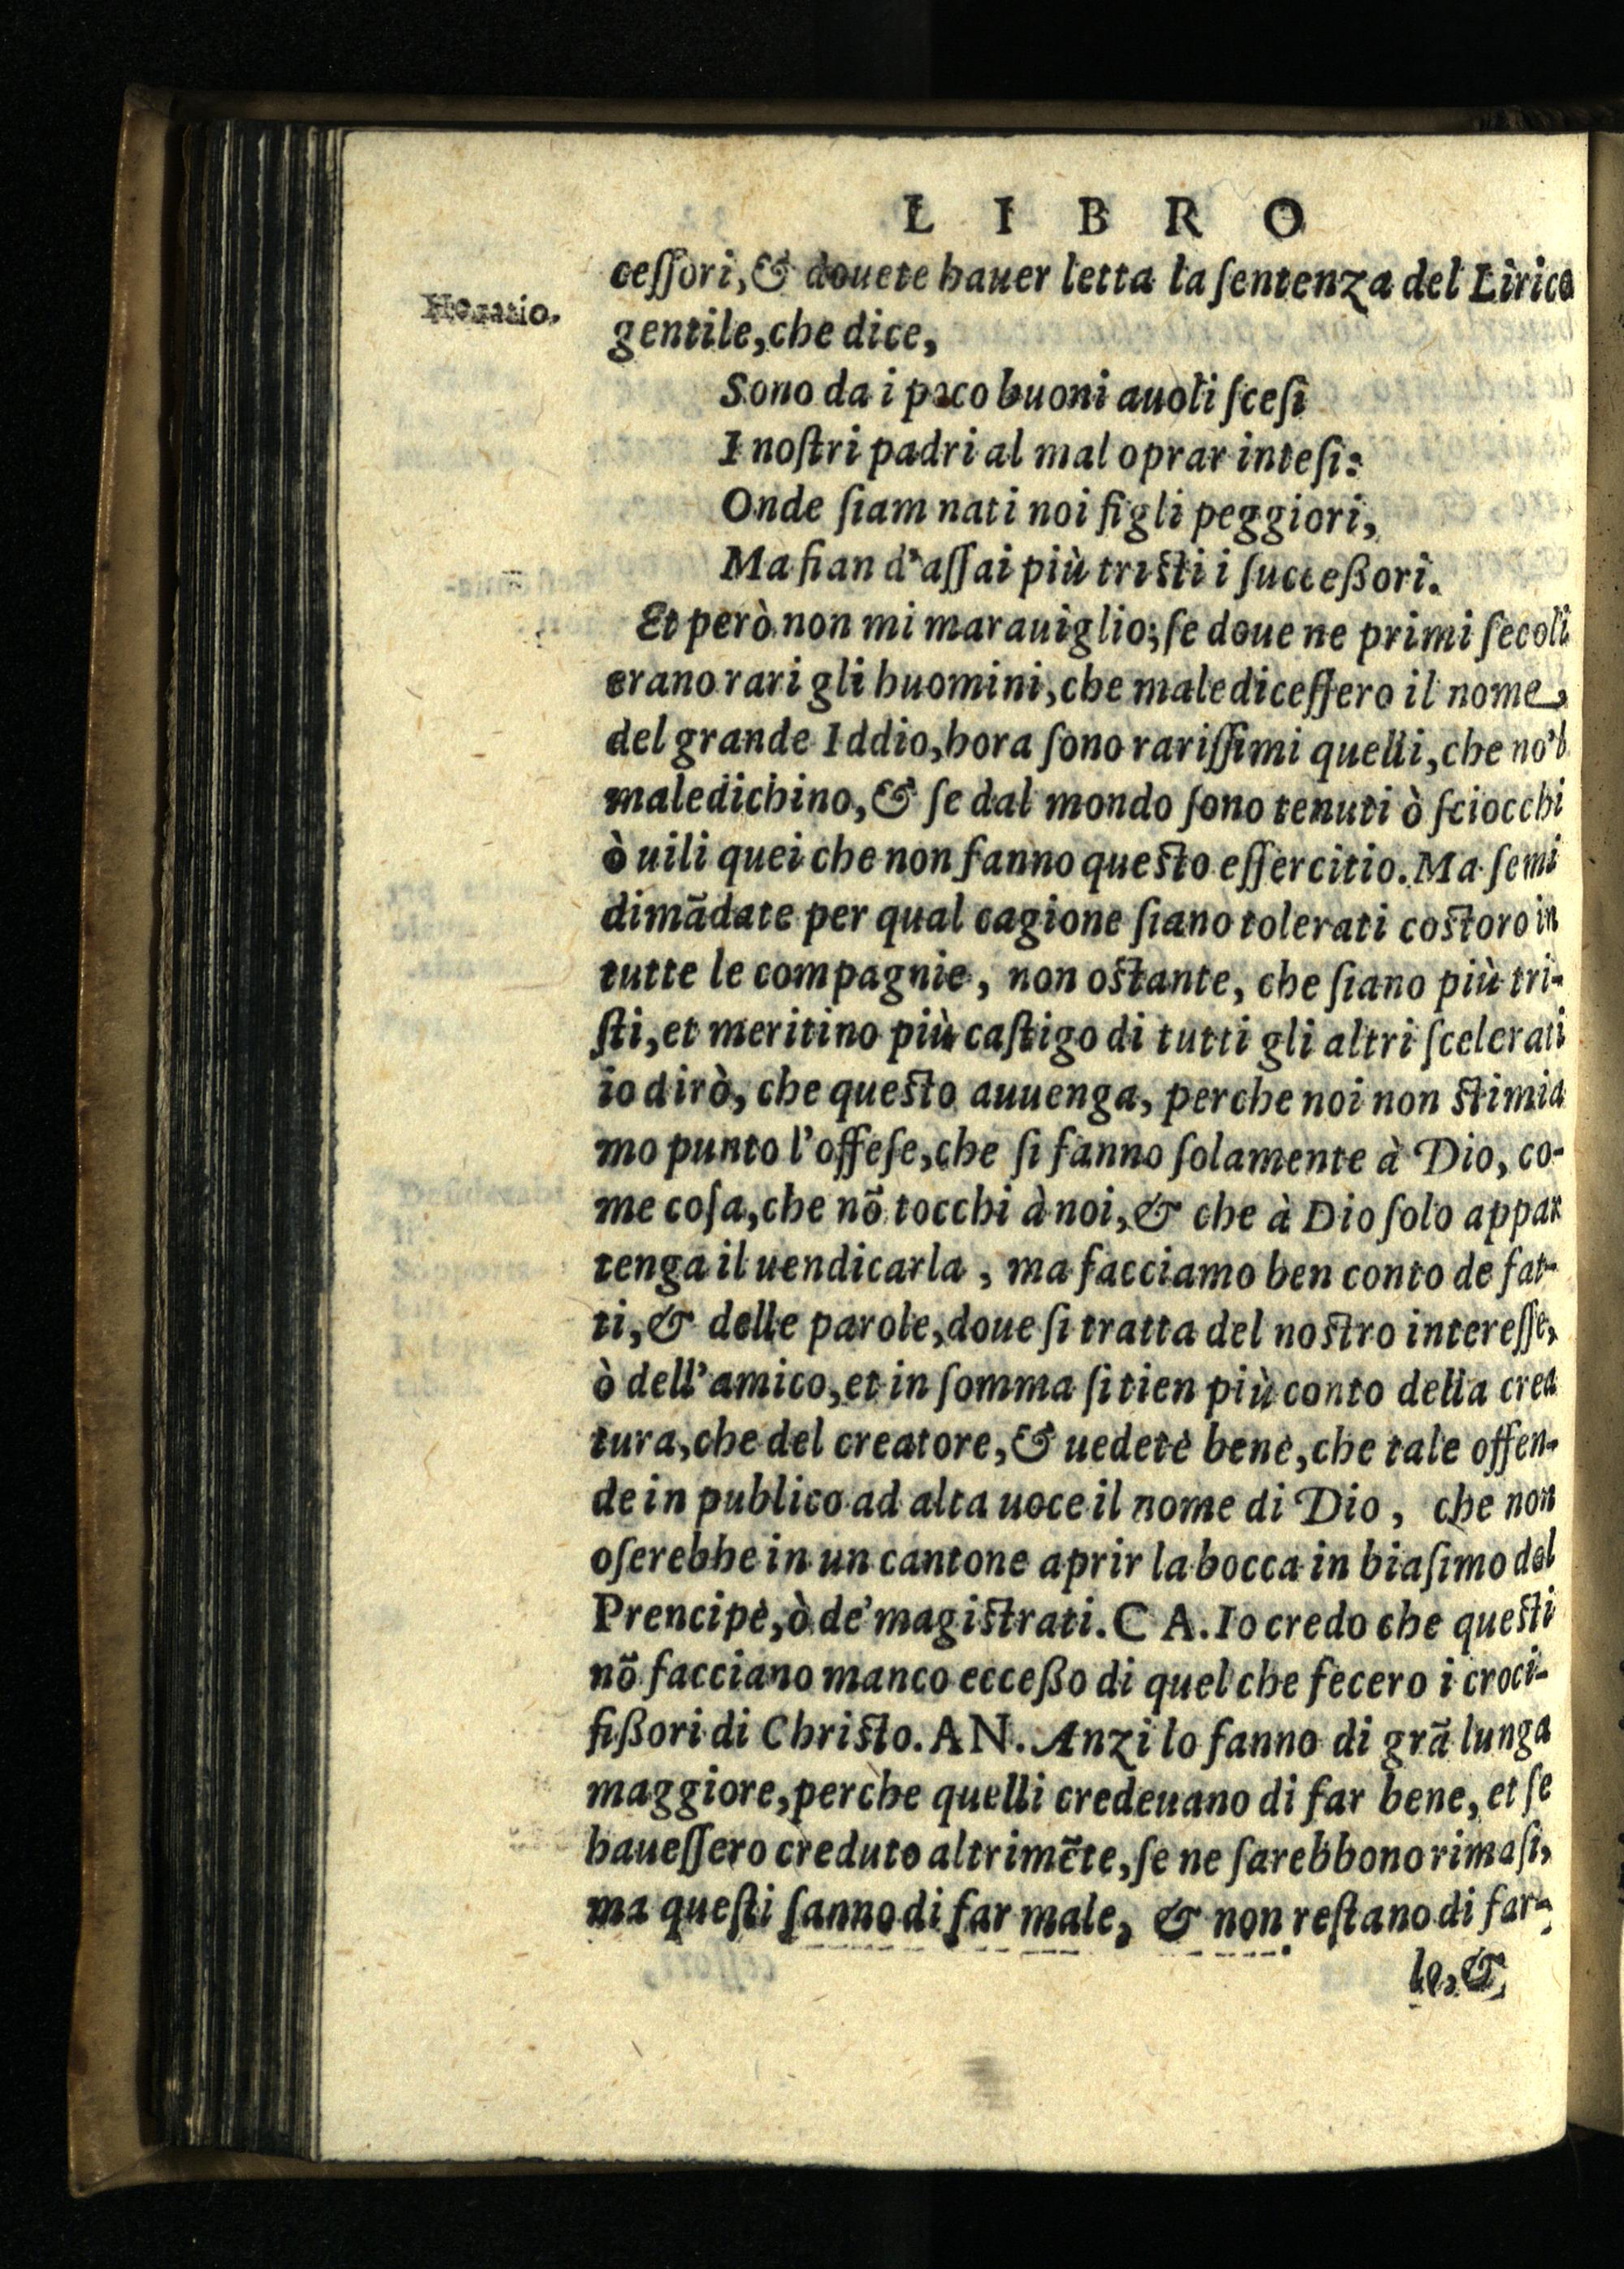 LIBRO
ceſſori, & douete hauer letta la ſentenza del Lirico
Horatio.
gentile, che dice,
Sono da i poco buoni auoli ſceſi
I noſtri padri al mal oprar inteſi:
Onde ſiam nati noi figli peggiori,
Ma fian d'aſſai più triſti i ſucceßori.
Et però non mi marauiglio; ſe doue ne primi ſecoli
erano rari gli huomini, che malediceſſero il nome,
del grande Iddio, hora ſono rariſſimi quelli, che no'l
maledichino, & ſe dal mondo ſono tenuti ò ſciocchi
ò uili quei che non fanno queſto eſſercitio. Ma ſe mi
dimãdate per qual cagione ſiano tolerati coſtoro in
tutte le compagnie, non oſtante, che ſiano più tri-
ſti, et meritino più caſtigo di tutti gli altri ſcelerati
io dirò, che queſto auuenga, perche noi non ſtimia
mo punto l'offeſe, che ſi fanno ſolamente à Dio, co-
me coſa, che nõ tocchi à noi, & che à Dio ſolo appar
tenga il uendicarla, ma facciamo ben conto de fat-
ti, & delle parole, doue ſi tratta del noſtro intereſſe,
ò dell'amico, et in ſomma ſi tien più conto della crea
tura, che del creatore, & uedete bene, che tale offen-
de in publico ad alta uoce il nome di Dio, che non
oſerebbe in un cantone aprir la bocca in biaſimo del
Prencipe, ò de' magiſtrati. CA. Io credo che queſti
nõ facciano manco ecceßo di quel che fecero i croci-
fißori di Chriſto. AN. Anzi lo fanno di grã lunga
maggiore, perche quelli credeuano di far bene, et ſe
haueſſero creduto altrimẽte, ſe ne ſarebbono rimaſi,
ma queſti ſanno di far male, & non reſtano di far-
lo, &